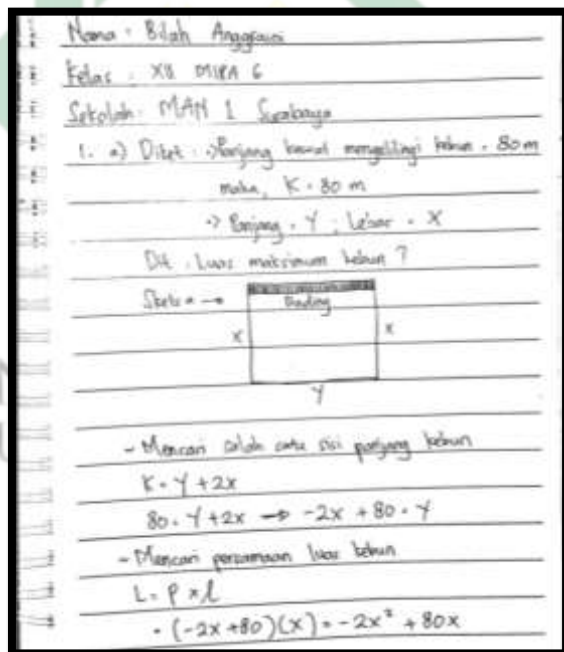 Nama : Bilah Anggraini
Kelas : XII MIPA 6
Sekolah : MAN 1 Surabaya
1. a) Diket : -> Panjang kawat mengelilingi kebun = 80 m
maka, K = 80 m
-> Panjang = Y ; Lebar = X
Dit : Luas maksimum kebun ?
Sketsa →
Dinding
X X
Y
- Mencari salah satu sisi panjang kebun
K = Y + 2x
80 = Y + 2x → -2x + 80 = Y
- Mencari persamaan luas kebun
L = P x l
= (-2x + 80)(x) = -2x² + 80x